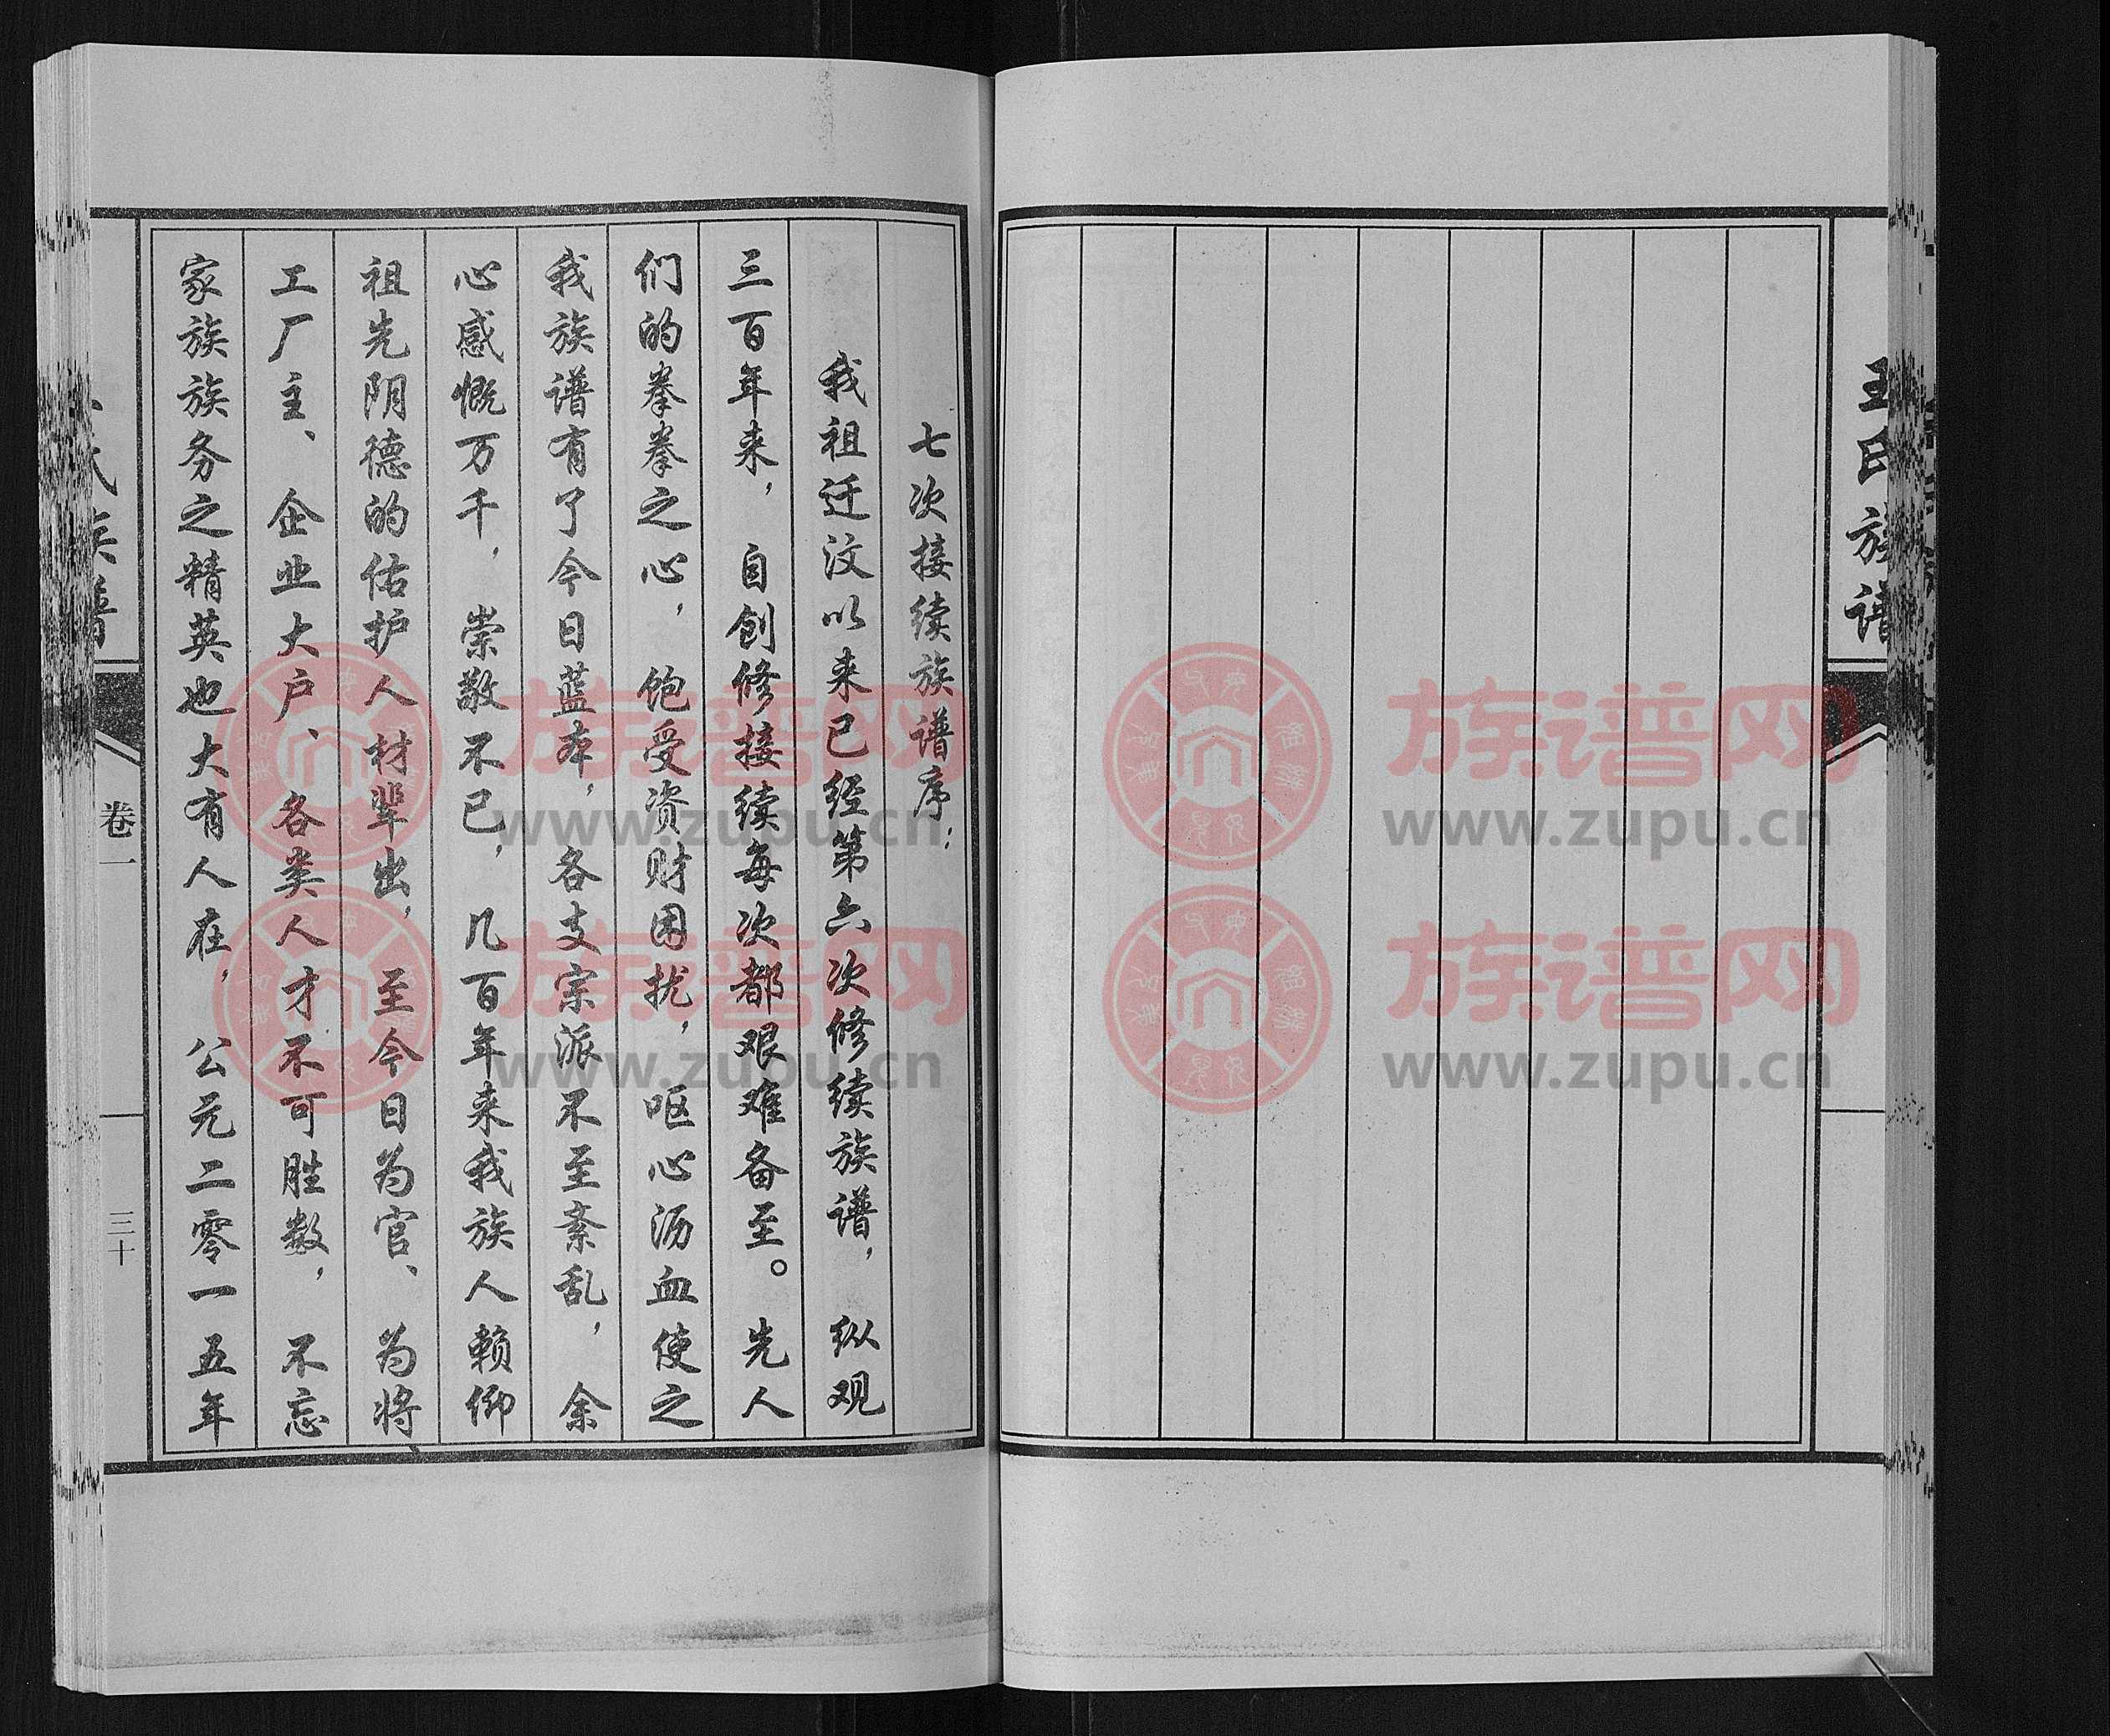 王氏族谱
七次接续族谱序：
我祖迁汶以来已经第六次修续族谱，纵观
三百年来，自创修接续每次都艰难备至。先人
们的拳拳之心，饱受资财困扰，呕心沥血使之
我族谱有了今日蓝本，各支宗派不至紊乱，余
心感慨万千，崇敬不已，几百年来我族人赖仰
祖先阴德的估护人材辈出，至今日为官、为将、
工厂主、企业大户、各类人才不可胜数，不忘
家族族务之精英也大有人在，公元二零一五年
氏族谱
卷一
三十
族谱网
www.zupu.cn
族谱网
www.zupu.cn
族谱网
www.zupu.cn
族谱网
www.zupu.cn